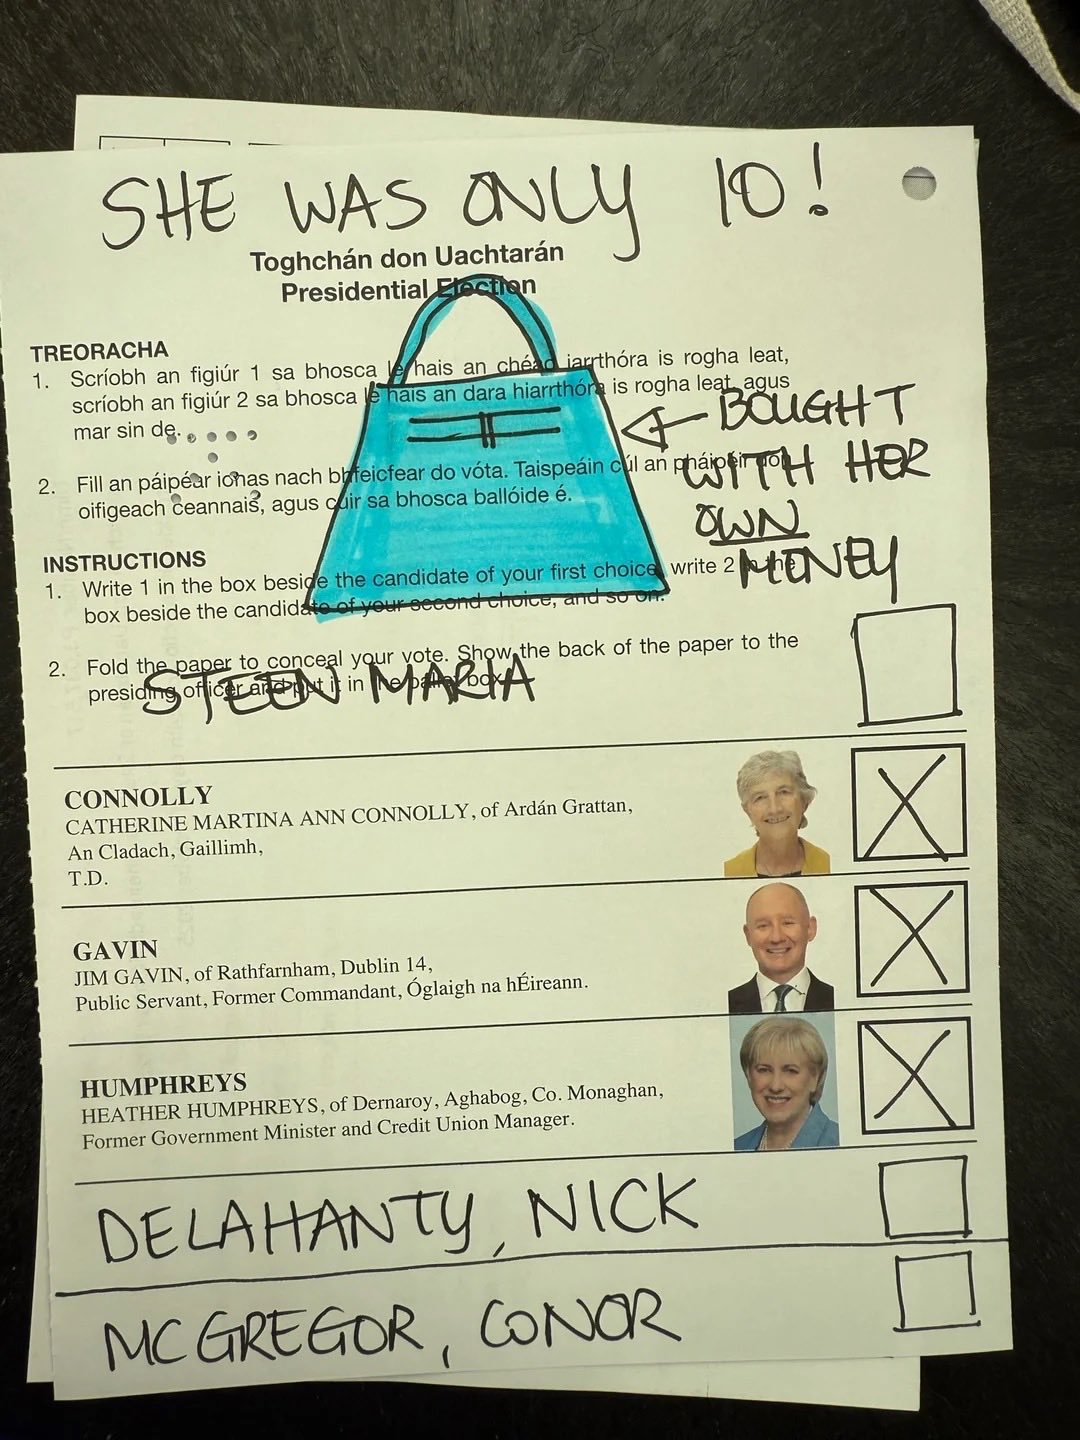 SHE WAS ONLY 10!
Toghchán don Uachtarán
Presidential Election
TREORACHA
1. Scríobh an figiúr 1 sa bhosca le hais an chéad iarrthóra is rogha leat,
scríobh an figiúr 2 sa bhosca le hais an dara hiarrthóra is rogha leat, agus
mar sin de.
2. Fill an páipéar ionas nach bhfeicfear do vóta. Taispeáin cúl an pháipéir don
oifigeach ceannais, agus cuir sa bhosca ballóide é.
BOUGHT
WITH HER
OWN
MONEY
INSTRUCTIONS
1. Write 1 in the box beside the candidate of your first choice, write 2 in the
box beside the candidate of your second choice, and so on.
2. Fold the paper to conceal your vote. Show the back of the paper to the
presiding officer and put it in the ballot box.
STEEN MARIA
CONNOLLY
CATHERINE MARTINA ANN CONNOLLY, of Ardán Grattan,
An Cladach, Gaillimh,
T.D.
GAVIN
JIM GAVIN, of Rathfarnham, Dublin 14,
Public Servant, Former Commandant, Óglaigh na hÉireann.
HUMPHREYS
HEATHER HUMPHREYS, of Dernaroy, Aghabog, Co. Monaghan,
Former Government Minister and Credit Union Manager.
DELAHANTY, NICK
MCGREGOR, CONOR